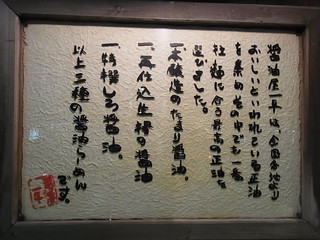 醤油屋一丹は、全国各地より
おいしいといわれている正油
を集めその中でも一番
社麺に合う最高の正油を
選びました。
一、本醸造のたまり醤油。
一、再仕込生揚醤油
一、特撰しろ醤油。
以上三種の醤油らーめん
です。